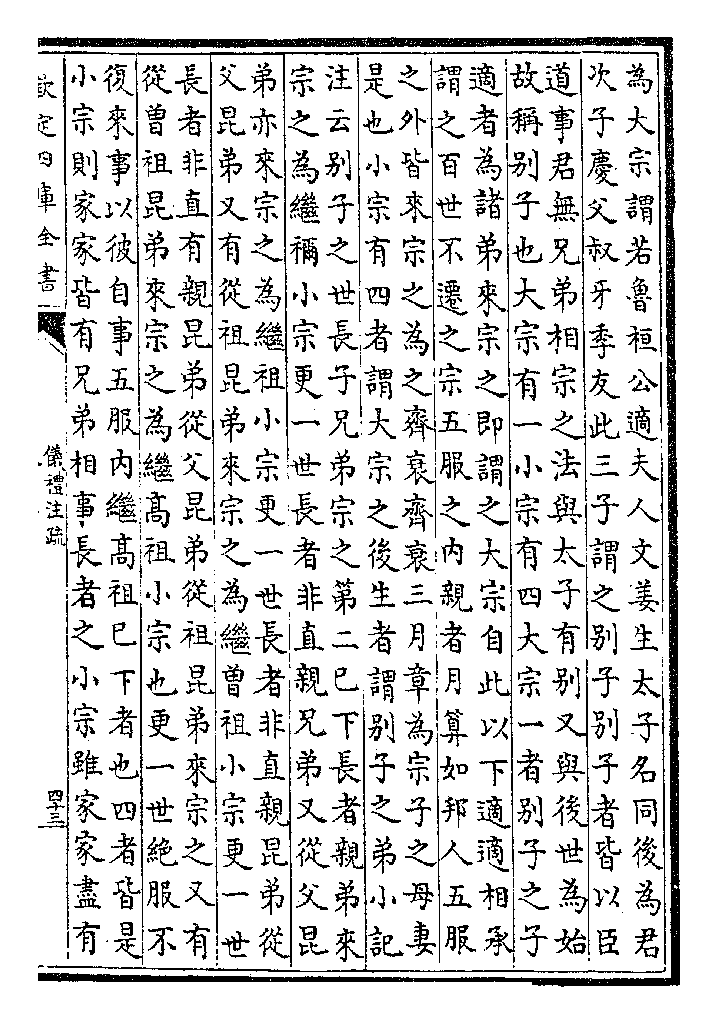 為大宗謂若魯桓公適夫人文姜生太子名同後為君
次子慶父叔牙季友此三子謂之别子别子者皆以臣
道事君無兄弟相宗之法與太子有别又與後世為始
故稱别子也大宗有一小宗有四大宗一者别子之子
適者為諸弟來宗之即謂之大宗自此以下適適相承
謂之百世不遷之宗五服之内親者月算如邦人五服
之外皆來宗之為之齊衰齊衰三月章為宗子之母妻
是也小宗有四者謂大宗之後生者謂别子之弟小記
注云别子之世長子兄弟宗之第二已下長者親弟來
宗之為繼禰小宗更一世長者非直親兄弟又從父昆
弟亦來宗之為繼祖小宗更一世長者非直親昆弟從
父昆弟又有從祖昆弟來宗之為繼曾祖小宗更一世
長者非直有親昆弟從父昆弟從祖昆弟來宗之又有
從曾祖昆弟來宗之為繼高祖小宗也更一世絶服不
復來事以彼自事五服内繼高祖已下者也四者皆是
小宗則家家皆有兄弟相事長者之小宗雖家家盡有
欽定四庫全書
儀禮注疏
四十三